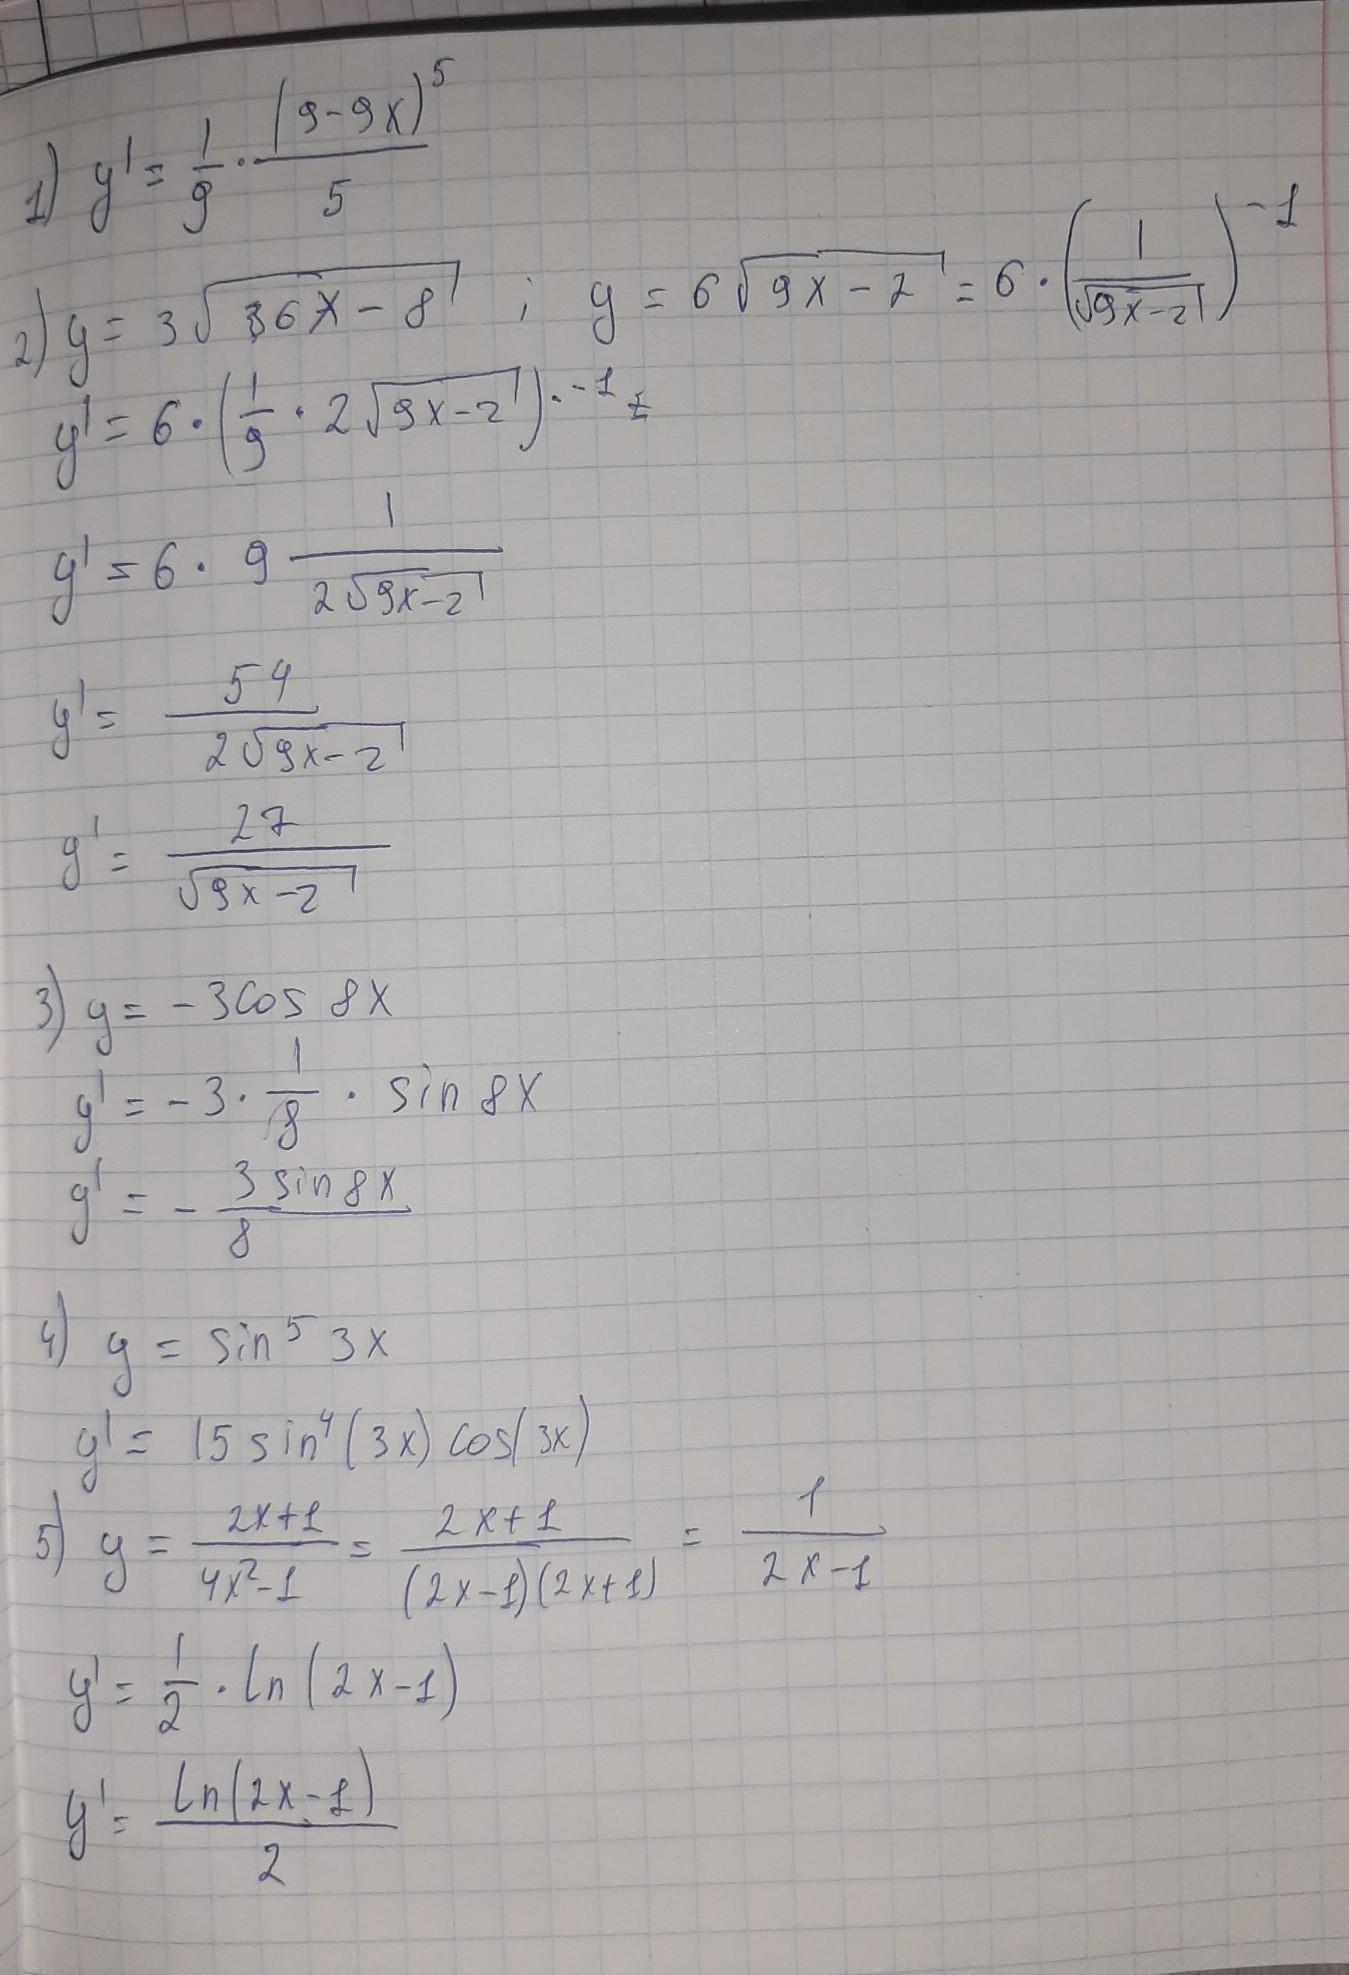 1) y' = 1/9 · (9-9x)^5 / 5
2) y = 3√(36x-8) ; y = 6√(9x-2) = 6·(1/√(9x-2))^-1
y' = 6·(1/9 · 2√(9x-2))·^-1 =
y' = 6 · 9 1/(2√(9x-2))
y' = 54/(2√(9x-2))
y' = 27/√(9x-2)
3) y = -3cos 8x
y' = -3 · 1/8 · sin 8x
y' = - 3 sin 8x / 8
4) y = sin^5 3x
y' = 15 sin^4 (3x) cos(3x)
5) y = (2x+1)/(4x²-1) = (2x+1)/((2x-1)(2x+1)) = 1/(2x-1)
y' = 1/2 · ln(2x-1)
y' = ln(2x-1)/2